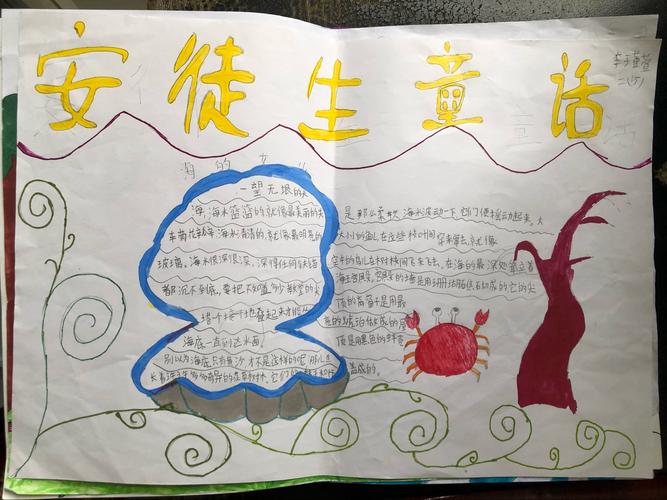 安徒生童话
李瑾萱
二(5)
海的女儿
一望无垠的大
海,海水蓝蓝的就像最美丽的矢
车菊花瓣海水清的就像最明亮的
玻璃。海水很深很深,深得任何铁锚
都沉不到底。要把不知道多少教堂的尖
塔一个接一个地叠起来才能从
海底一直到达水面。
别以为海底只有黄沙才不是这样的呢那儿生
长着许多多奇异的花草树林,它们的
是那么柔软海水波动一下,它们便摇动起来,大
大小小的鱼儿在这些枝叶间穿来穿去,就像
空中的鸟儿在树枝间飞来飞去,在海的最深处矗立着
海王宫殿,宫殿的墙是用珊瑚石切成的,它的尖
顶的高窗子是用最
亮的琥珀做成的屋
顶是用黑色的蚌壳
盖成的。